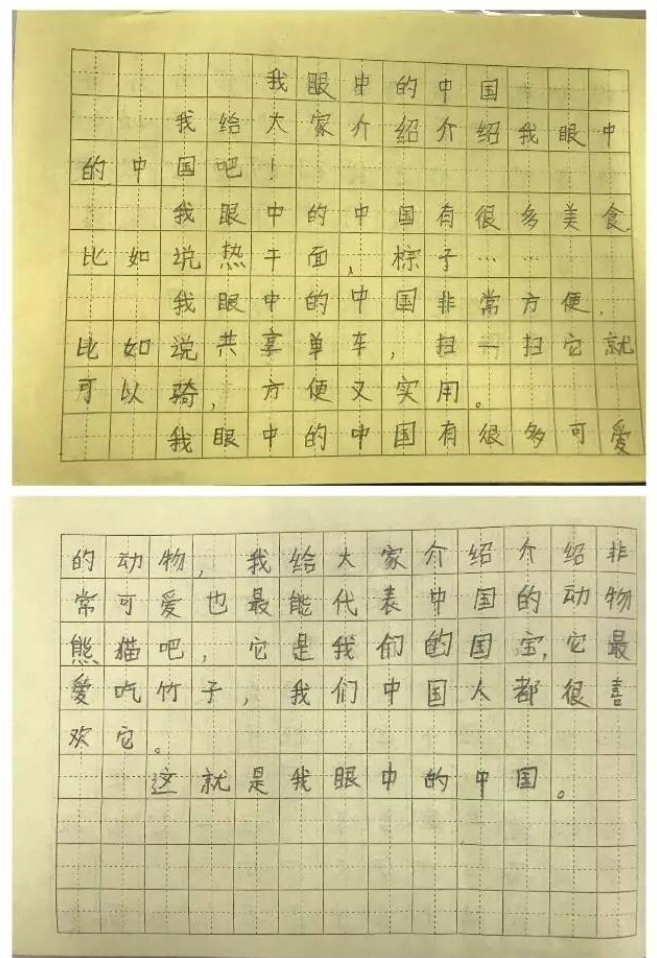 我眼中的中国
我给大家介绍介绍我眼中
的中国吧！
我眼中的中国有很多美食
比如说热干面，棕子……
我眼中的中国非常方便，
比如说共享单车，扫一扫它就
可以骑，方便又实用。
我眼中的中国有很多可爱
的动物，我给大家介绍介绍非
常可爱也最能代表中国的动物
熊猫吧，它是我们的国宝，它最
爱吃竹子，我们中国人都很喜
欢它。
这就是我眼中的中国。